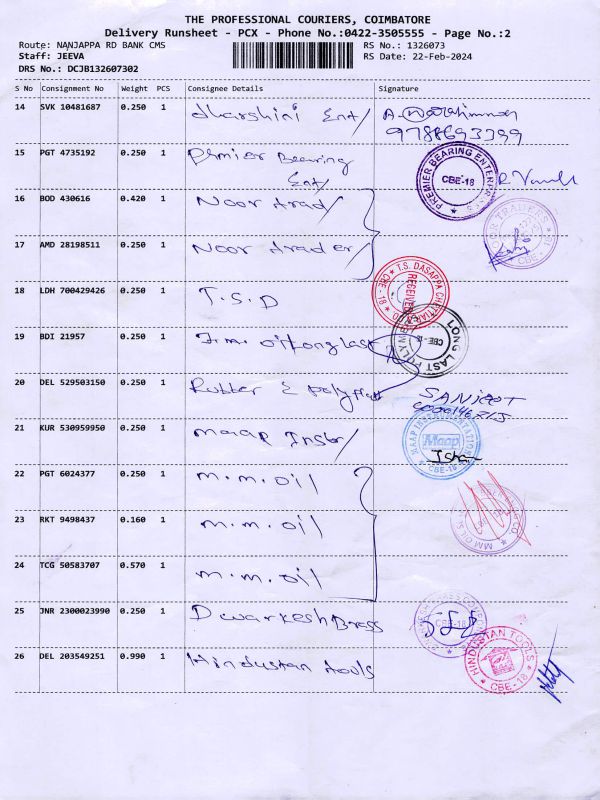 THE PROFESSIONAL COURIERS, COIMBATORE
Delivery Runsheet - PCX - Phone No.:0422-3505555 - Page No.:2
Route: NANJAPPA RD BANK CMS RS No.: 1326073
Staff: JEEVA RS Date: 22-Feb-2024
DRS No.: DCJB132607302
S No Consignment No Weight PCS Consignee Details Signature
14 SVK 10481687 0.250 1 dharshini Ent/
15 PGT 4735192 0.250 1 Premier Bearing
Ent/
PREMIER BEARING ENTERPRISES
CBE-18
16 BOD 430616 0.420 1 Noor Trad/
17 AMD 28198511 0.250 1 Noor Trader/
TRADERS
CBE-
18 LDH 700429426 0.250 1 T.S.D
T.S. DASAPPA CHETTIAR
CBE - 18
RECEIVED
19 BDI 21957 0.250 1 longlast
LONG LAST POLY
CBE-18
20 DEL 529503150 0.250 1 Rubber & Poly
SANJEET
21 KUR 530959950 0.250 1 maap Instr/
MAAP INSTRUMENTATION
Maap
CBE-18
22 PGT 6024377 0.250 1 m.m.oil
23 RKT 9498437 0.160 1 m.m.oil
MM OIL
24 TCG 50583707 0.570 1 m.m.oil
25 JNR 2300023990 0.250 1 Dwarkesh Brass
CBE-18
26 DEL 203549251 0.990 1 Hindustan tools
HINDUSTAN TOOLS
CBE-18